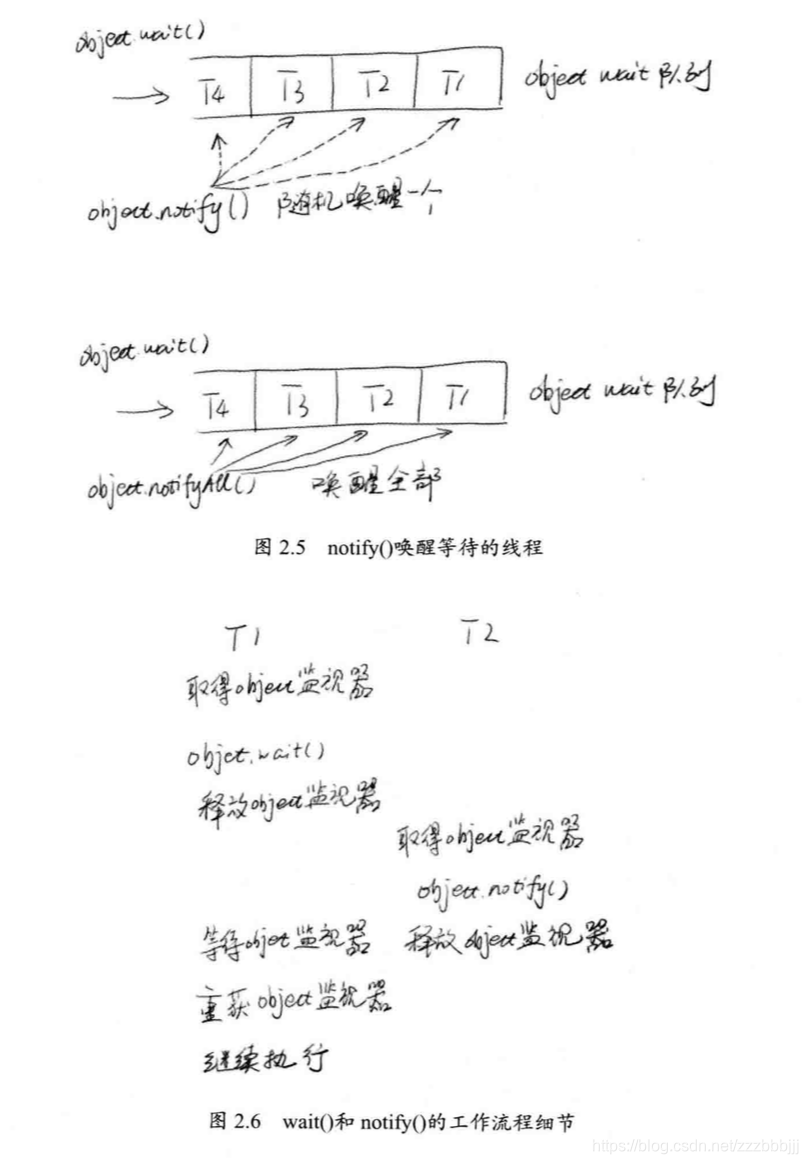 object.wait()
T4 T3 T2 T1 object wait 队列
object.notify() 随机唤醒一个
object.wait()
T4 T3 T2 T1 object wait 队列
object.notifyAll() 唤醒全部
图 2.5 notify()唤醒等待的线程
T1 T2
取得object监视器
objet.wait()
释放object监视器
取得object监视器
object.notify()
等待objet监视器 释放object监视器
重获object监视器
继续执行
图 2.6 wait()和 notify()的工作流程细节
https://blog.csdn.net/zzzbbbjjj